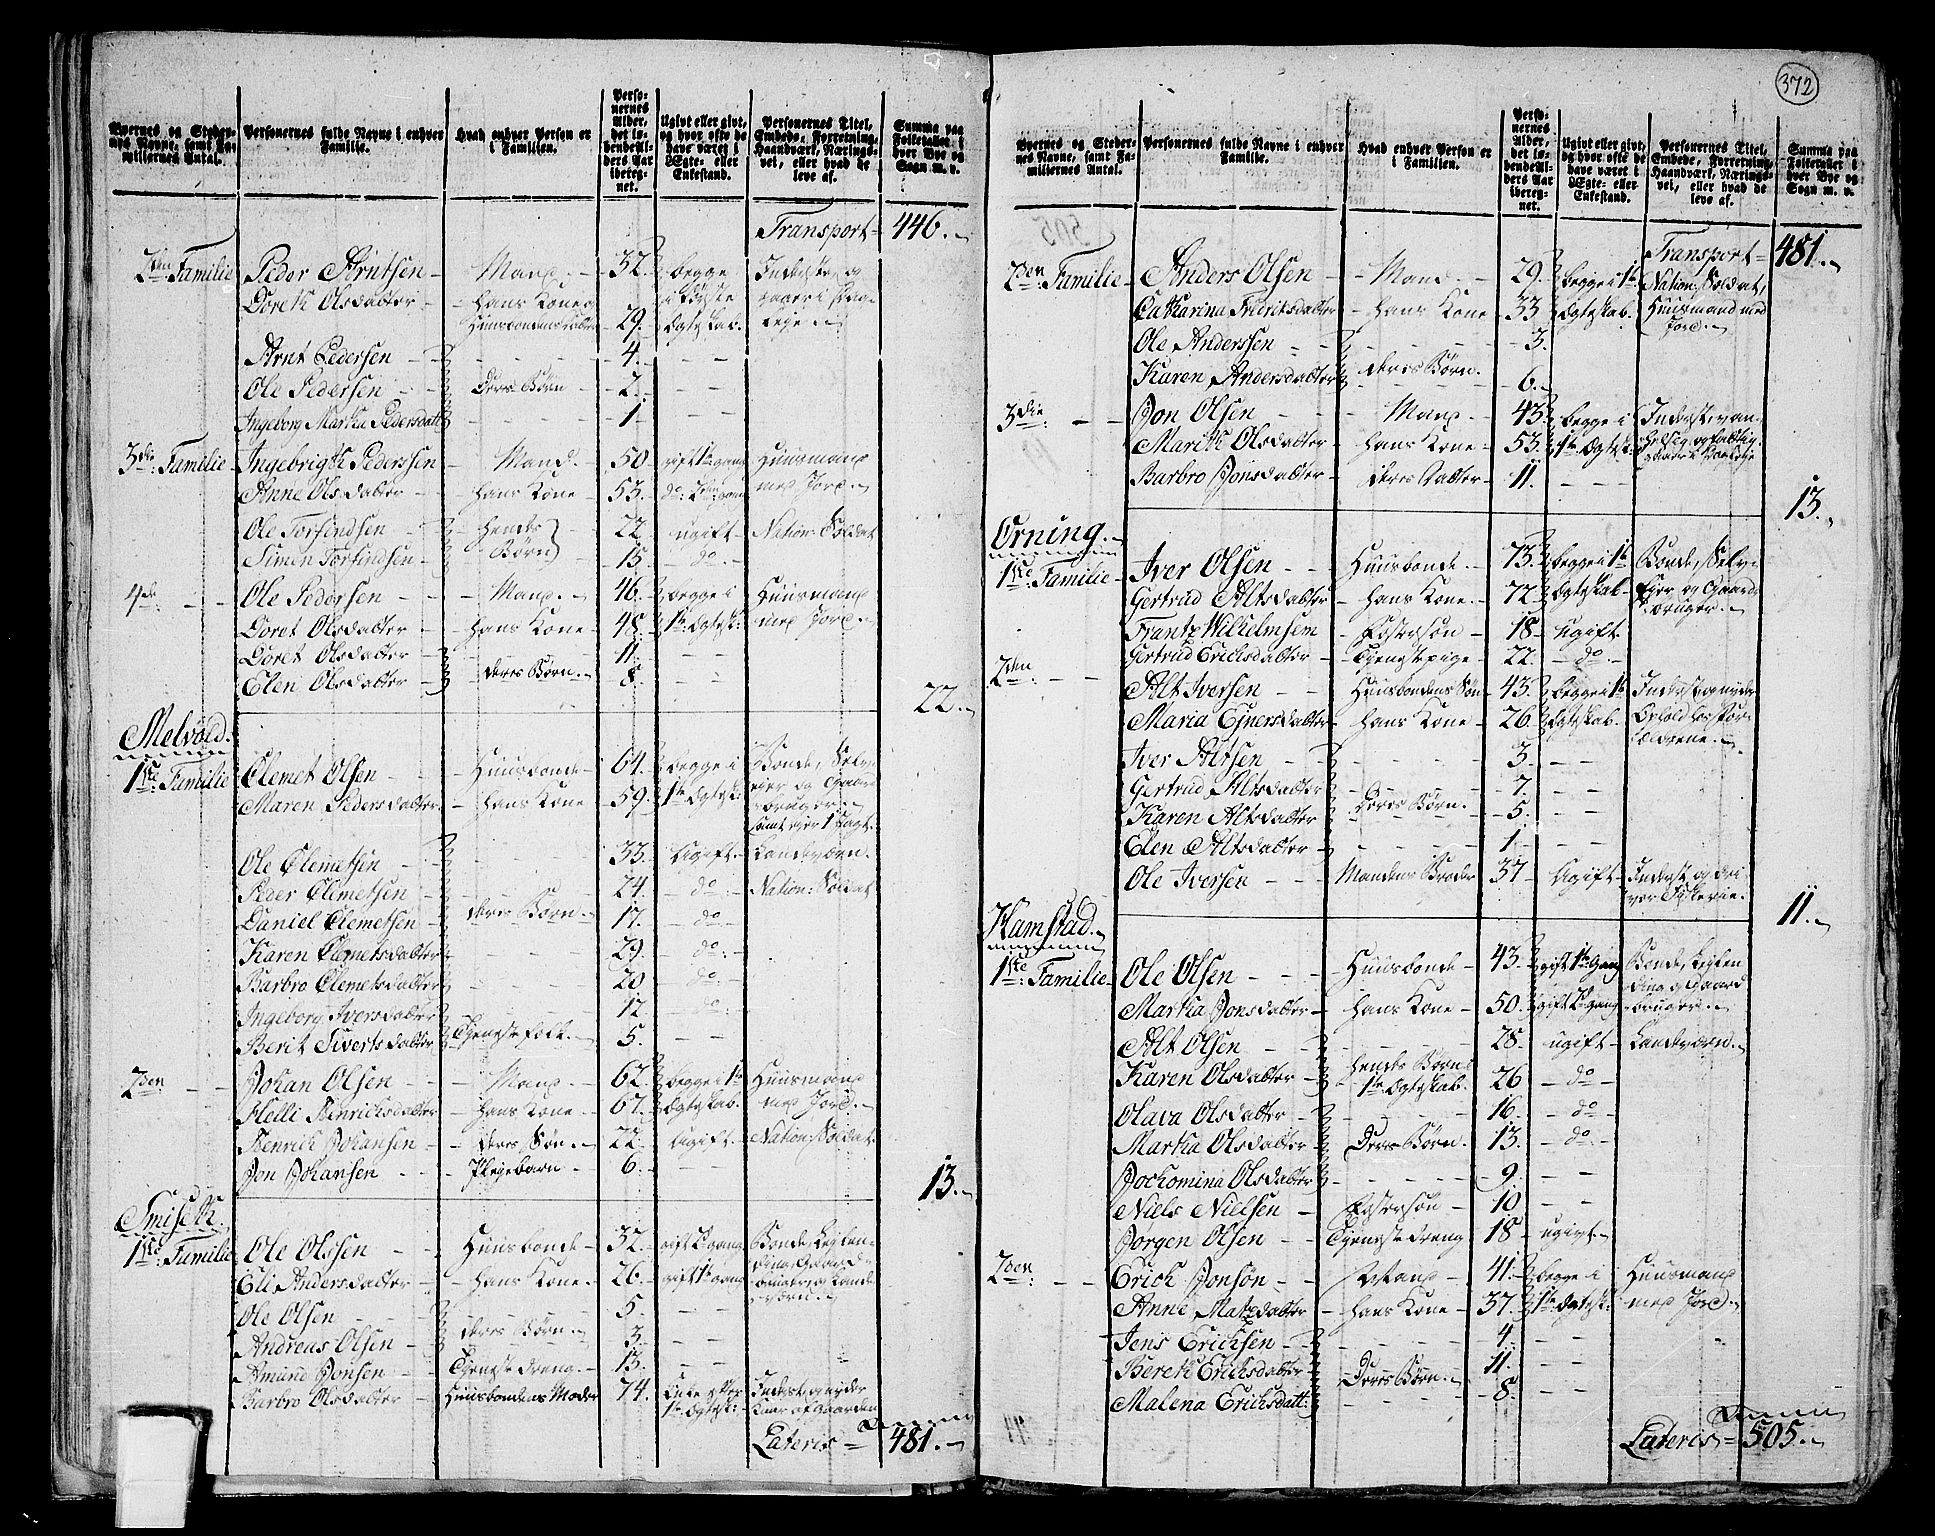 Byernes og Steder-
nes Navne, samt Fa-
miliernes Antal.
Personernes fulde Navne i enhver
Familie.
Hvad enhver Person er
i Familien.
Perso-
nernes
Alder,
det lø-
bende Al-
ders Aar
ibereg-
net.
Ugivt eller givt,
og hvor ofte de
have været i
Ægte- eller
Enkestand.
Personernes Titel,
Embede, Forretning,
Haandværk, Nærings-
vei, eller hvad de
leve af.
Summa paa
Folketallet i
hver Bye og
Sogn m. v.
Transport 446.
2den Familie Peder Arntsen - Mand. 32. begge Inderster og
Doreth Olsdatter - Hans Kone og i første
Huusbondens Datter 29. Ægteskab.
Arnt Pedersen - 4.
Ole Pedersen - Deres Børn - 2.
Ingeborg Martha Pedersdatt - 1
3die Familie Ingebrigth Pederssen - Mand. 50. gift 1te gang Huusmand
Anne Olsdatter - Hans Kone - 53. do 2den gang med Jord.
Ole Torfindsen - Hendes 22. ugift Nation: Soldat
Simen Torfindsen - Børn 15. do
4de Ole Pedersen - Mand. 46. begge i Huusmand
Doret Olsdatter - Hans Kone - 48. 1te Ægtesk: med Jord.
Doret Olsdatter 11.
Elen Olsdatter - deres Børn. 8.
22.
Melvold.
1ste Familie Clemet Olsen - Huusbonde - 64. begge i Bonde, Selv-
Maren Pedersdatter - Hans Kone 59. 1te Ægtesk: ejer og Gaard
bruger.
samt ejer 1 Jagt.
Ole Clemetsen 33. Ugift Landeværn.
Peder Clemetsen 24. do Nation: Soldat
Daniel Clemetsen deres Børn. 17. do
Karen Clemetsdatter 29. do
Barbro Clemetsdatter 20 do
Ingeborg Iversdatter 12 do
Berit Sivertsdatter Tjenestefolk. 5.
2den Johan Olsen - Mand 62. begge i 1te Huusmand
Helli Henrichsdatter - Hans Kone - 67. Ægteskab. med Jord.
Henrich Johansen - deres Søn. 22. Ugift Nation: Soldat
Jon Johansen - Plejebarn - 6.
13.
Smiseth.
1ste Familie Ole Olssen - Huusbonde - 32. gift 2den gang Bonde, Lejlen-
Eli Andersdatter - Hans Kone. 26. gift 1te gang ding, Gaard-
bruger, og Lande
værn.
Ole Olsen 5.
Andreas Olsen deres Børn. 3.
Amund Jonsen - Tjeneste dreng. 13.
Barbro Olsdatter Huusbondens Moder 74. Enke efter Inderst, nyder
1te Ægtesk: Kaar af Gaarden
Lateris 481.
372
Byernes og Steder-
nes Navne, samt Fa-
miliernes Antal.
Personernes fulde Navne i enhver
Familie.
Hvad enhver Person er
i Familien.
Perso-
nernes
Alder,
det lø-
bende Al-
ders Aar
iberegnet.
Ugivt eller givt,
og hvor ofte de
have været i
Ægte- eller
Enkestand.
Personernes Titel,
Embede, Forretning,
Haandværk, Nærings-
vei, eller hvad de
leve af.
Summa paa
Folketallet i
hver Bye og
Sogn m. v.
Transport 481.
2den Familie Anders Olsen - Mand - 29. begge i 1te Nation: Soldat,
Catharina Fridritsdatter - Hans Kone 33 Ægteskab. Huusmand med
Jord.
Ole Anderssen - 3.
Karen Andersdatter deres Børn. 6.
3die Jon Olsen - Mand 43. begge i Inderste, van-
Marith Olsdatter - Hans Kone - 53. 1te Ægtesk:
Barbro Jonsdatter - deres Datter 11.
13.
Orning.
1ste Familie Iver Olsen - Huusbonde 73. begge i 1te Bonde, Selv-
Gertrud Altsdatter - Hans Kone. 72 Ægteskab Ejer og Gaard
bruger.
Frantz Wilhelmsem - Fostersøn - 18 - Ugift
Gertrud Erichsdatter - Tjenestepige - 22. do
2den Alt Iversen - Huusbondens Søn 43. begge i 1te Inderst og nyder
Maria Ejnersdatter - Hans Kone - 26. Ægteskab. Ophold hos For-
ældrene.
Iver Altsen - 3.
Gertrud Altsdatter 7.
Karen Altsdatter deres Børn. 5.
Elen Altsdatter 1
Ole Iversen - Mandens Broder 37 Ugift Inderst og dri
ver Fiskerie.
11.
Hamstad.
1ste Familie Ole Olsen - Huusbonde - 43. gift 1te Gang Bonde, Lejlen
Martha Jonsdatter - Hans Kone - 50. gift 2den gang ding og Gaard
bruger.
Alt Olsen 28. ugift Landeværn.
Karen Olsdatter Hendes Børn i 1te Ægteskab. 26 do
Olava Olsdatter 16. do
Martha Olsdatter Deres Børn. 13. do
Jochomina Olsdatter 9.
Niels Nielsen - Fostersøn - 10
Jørgen Olsen - Tjeneste dreng 18 ugivt
2den Erich Jonsøn - Mand - 41. begge i Huusmand
Anne Matzdatter - Hans Kone - 37. 1te Ægtesk: med Jord.
Jens Erichsen 4
Bereth Erichsdatter Deres Børn. 11.
Malena Erichsdatt: 8.
Lateris 505.